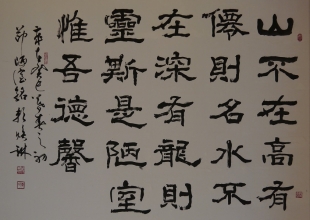 山不在高有
僊則名水不
在深有龍則
靈斯是陋室
惟吾德馨
陋室銘